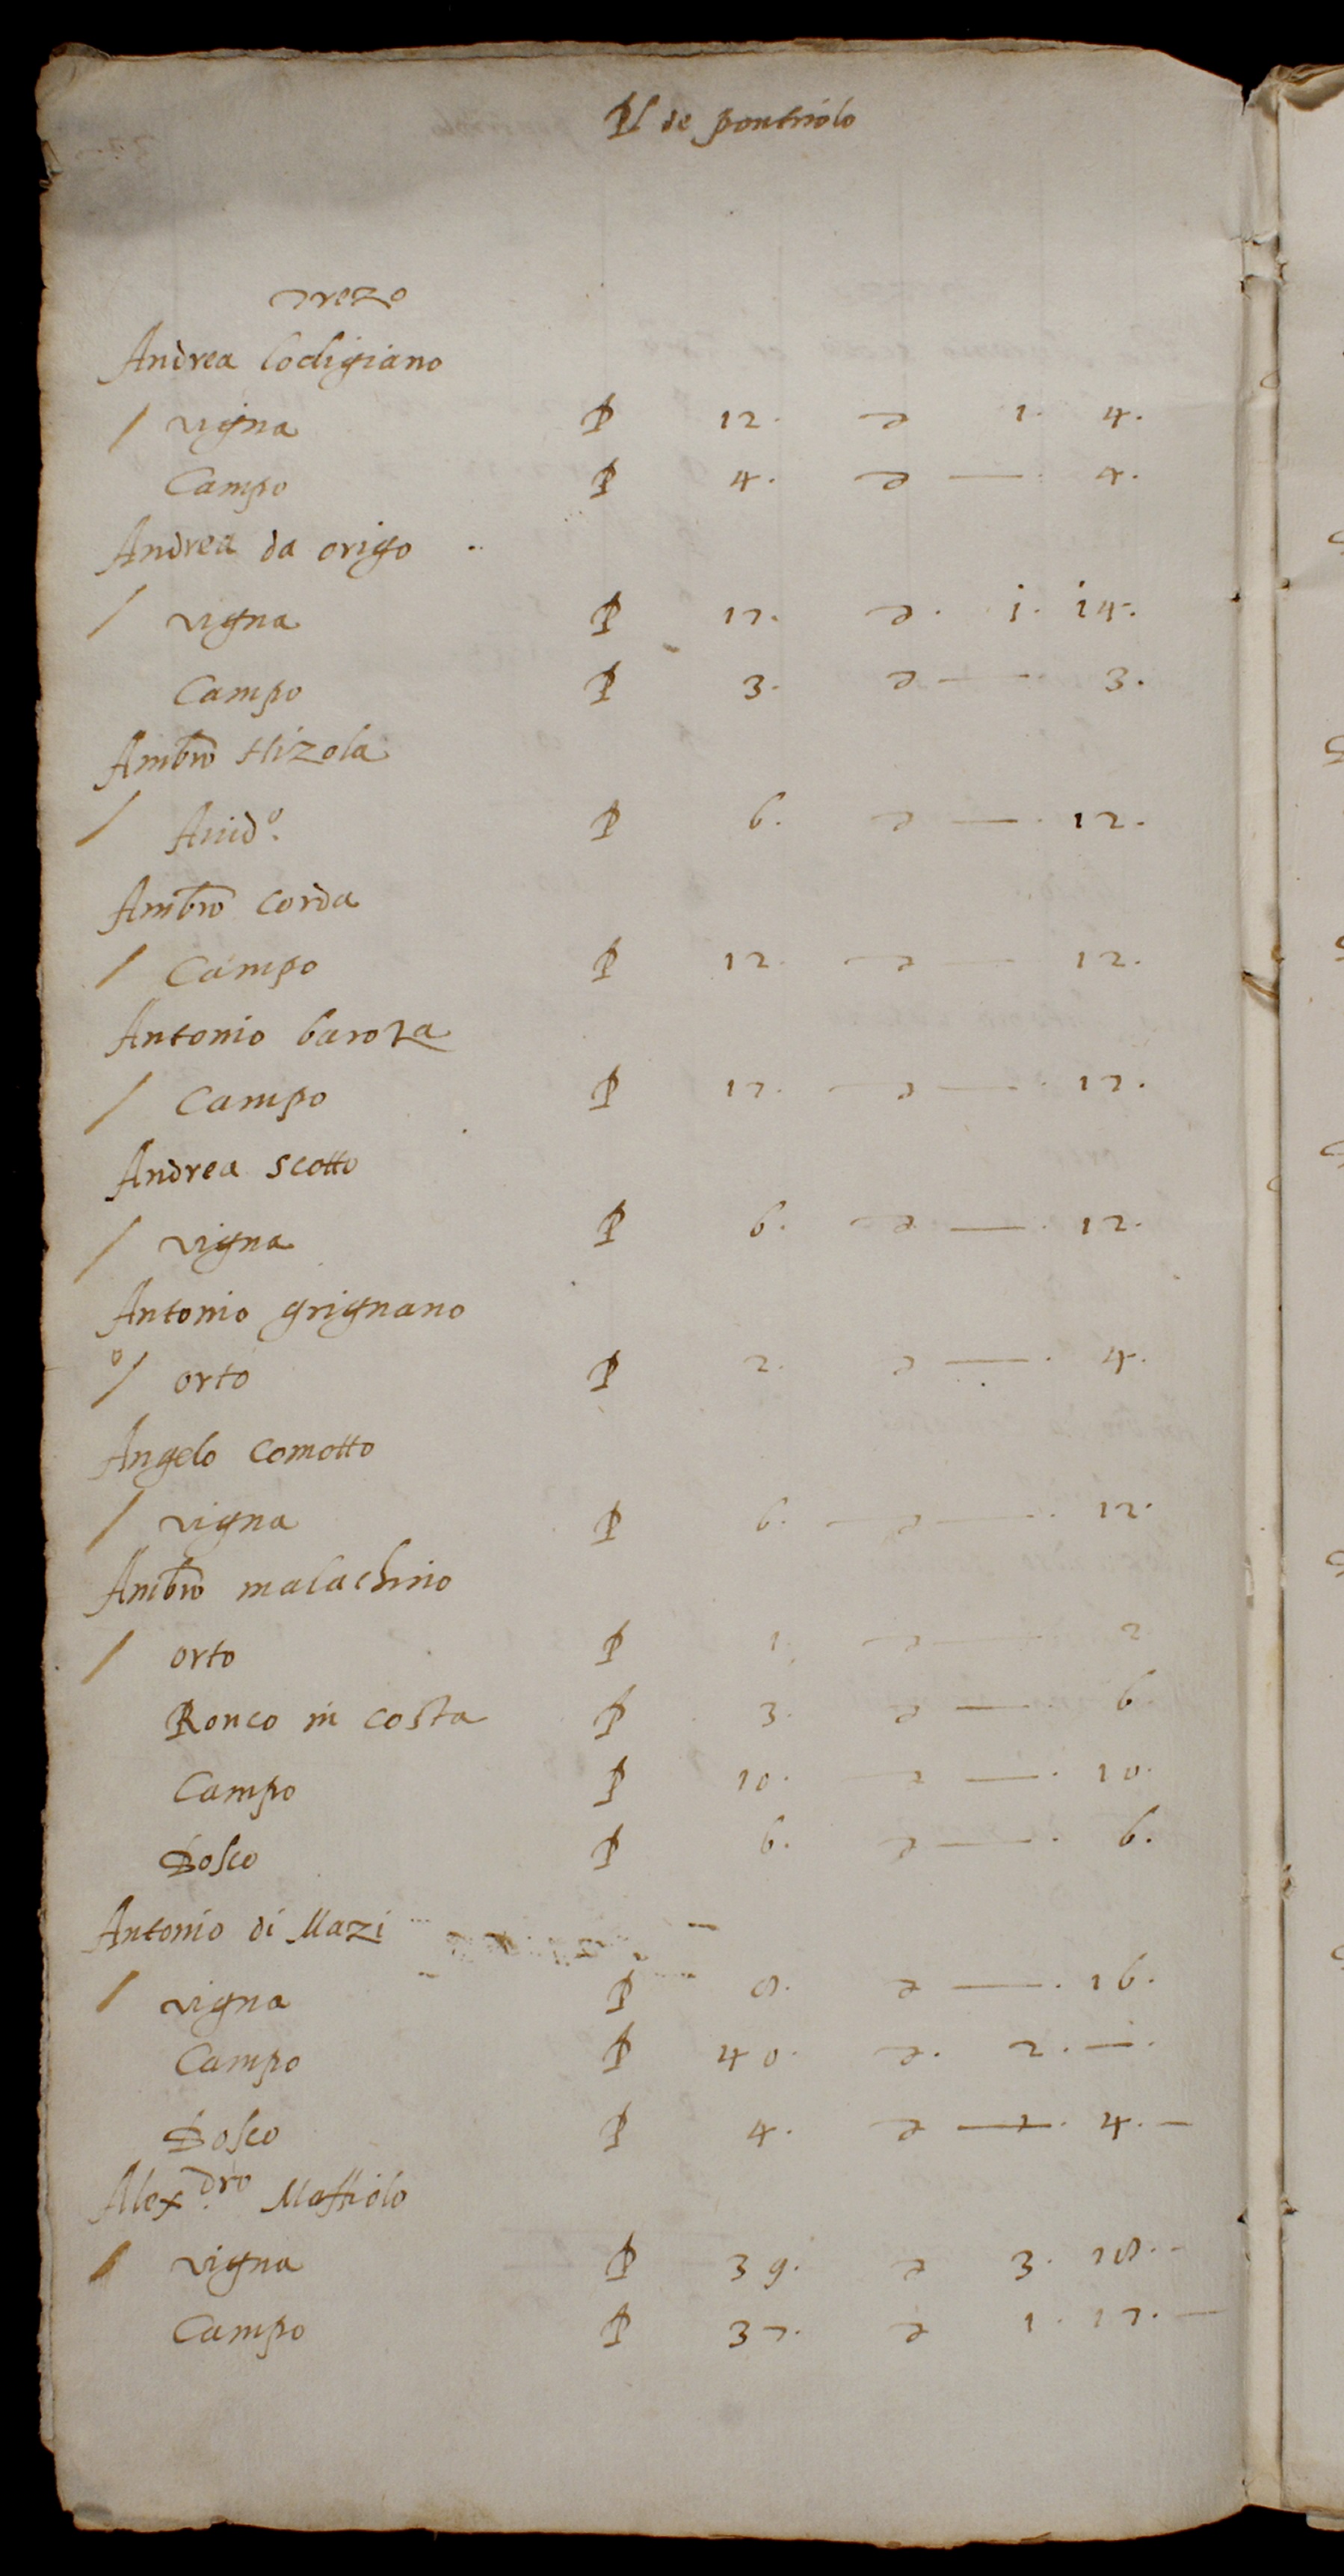 Pl de pontriolo
Trezo
Andrea lodigiano
/ vigna P 12. ə 1. 4.
Campo P 4. ə — . 4.
Andrea da origo
/ vigna P 17. ə. i. i4.
Campo P 3. ə — 3.
Ambro
/ P 6. ə — . 12.
Ambro corda
/ Campo P 12. ə — 12.
Antonio baroza
/ Campo P 17. ə — . 17.
Andrea scotto
/ vigna P 6. ə — . 12.
Antonio grignano
o/ orto P 2. ə — . 4.
Angelo comotto
/ vigna P 6. ə — . 12.
Ambro malachino
/ orto P 1. ə — 2
Ronco in costa P 3. ə — . 6.
Campo P 10. ə — . 10.
Bosco P 6. ə — . 6.
Antonio di Mazi
/ vigna P 8. ə — . 16.
Campo P 40. ə. 2. — .
Bosco P 4. ə — . 4. —
Alex.dro Maffiolo
/ vigna P 39. ə 3. 18. -
Campo P 37. ə 1. 17. —